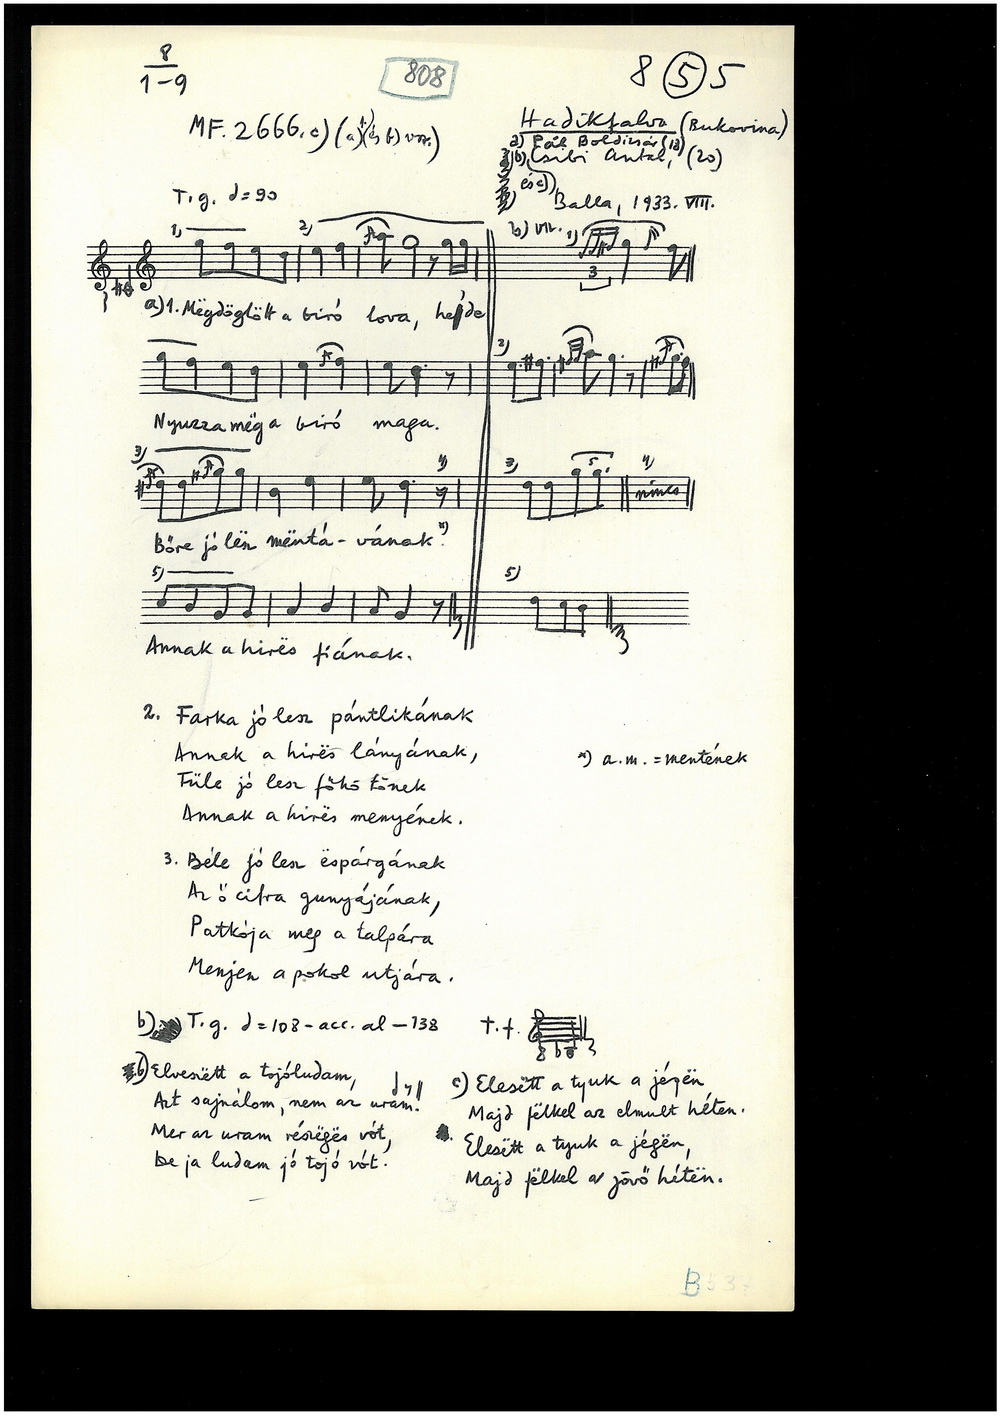 8
1-9
808
8 5 5
MF. 2666. c) (a) és b) var.)
Hadikfalva (Bukovina)
a) Pál Boldizsár (18)
b) Csibi Antal, (20)
és c)
Balla, 1933. VIII.
T.g. = 90
1) 2)
b) var. 1)
3
a) 1. Mëgdöglött a biró lova, hejde
2)
Nyuzza mëg a biró maga.
3) 4)
3) 5 4) nincs
Bőre jó lësz mëntá-vának x)
5) 5)
Annak a hirës fiának.
2. Farka jó lesz pántlikának
Annak a hirës lányának,
x) a.m. = mentének
Füle jó lesz főkötőnek
Annak a hirës menyének.
3. Béle jó lesz ëspárgának
Az ő cifra gunyájának,
Patkója meg a talpára
Menjen a pokol utjára.
b) T.g. = 108 - acc. al - 138 T.f.
b) Elveszëtt a tojóludam,
Azt sajnálom, nem az uram.
Mer az uram részëgës vót,
De ja ludam jó tojó vót.
c) Elesëtt a tyuk a jégën
Majd fëlkel az elmult héten.
Elesëtt a tyuk a jégën,
Majd fëlkel a jövő hétën.
B 537